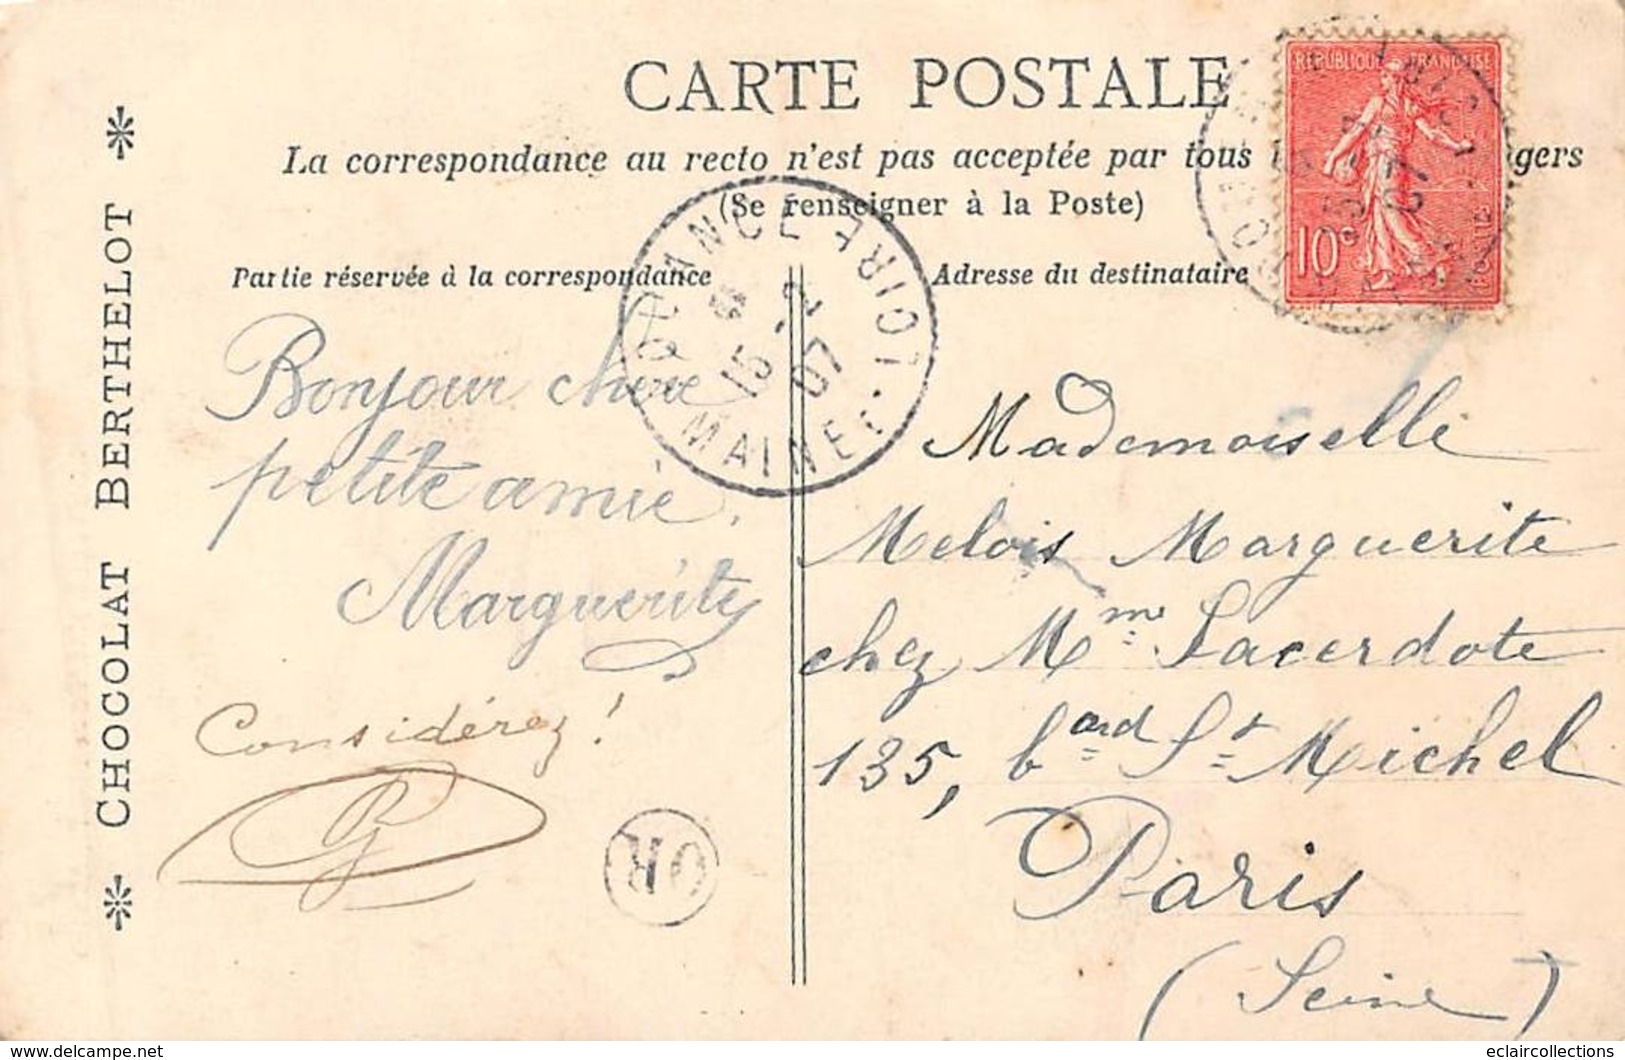 CARTE POSTALE
La correspondance au recto n'est pas acceptée par tous
(Se renseigner à la Poste)
Partie réservée à la correspondance
Adresse du destinataire
REPUBLIQUE FRANÇAISE
10c
MAINE-ET-LOIRE
15 -2
07
Bonjour chère
petite amie.
Marguerite
Considérez!
OR
Mademoiselle
Melois Marguerite
chez Mme Sacerdote
135, bard St Michel
Paris
(Seine)
CHOCOLAT BERTHELOT
eclaircollections